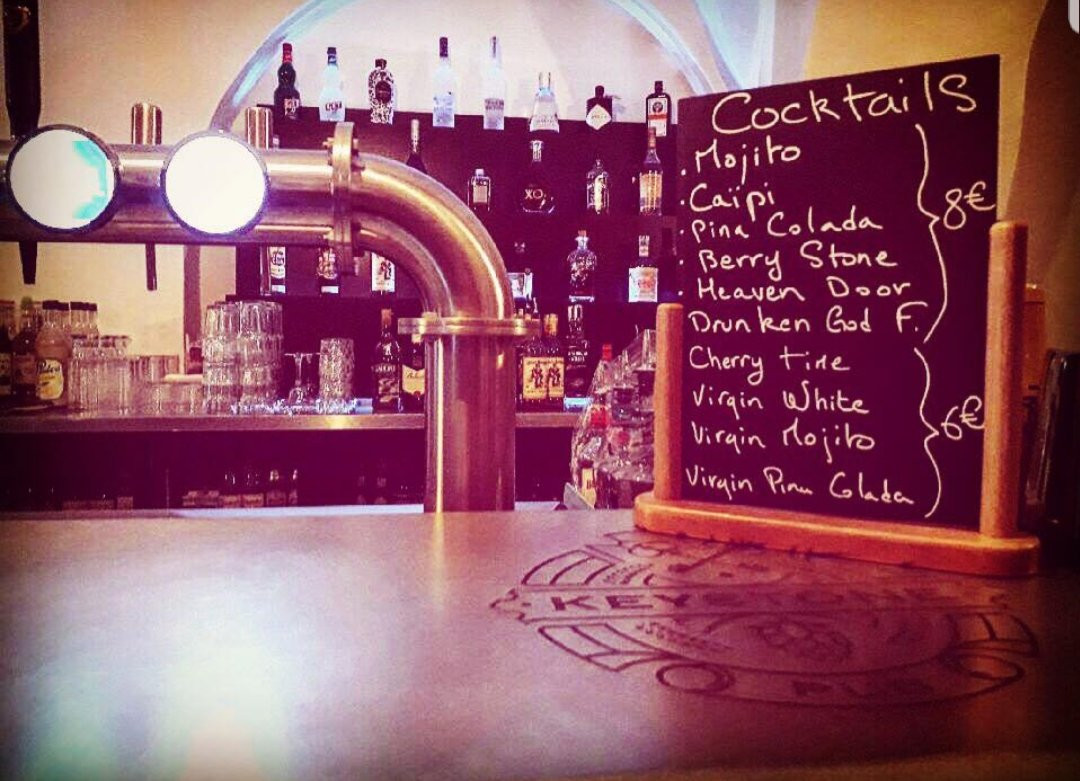 Cocktails
. Mojito
. Caïpi
. Pina Colada
. Berry Stone
. Heaven Door
Drunken God F.
8€
Cherry Time
Virgin White
Virgin Mojito
Virgin Pina Colada
6€
XO
KEYSTONE
PUB